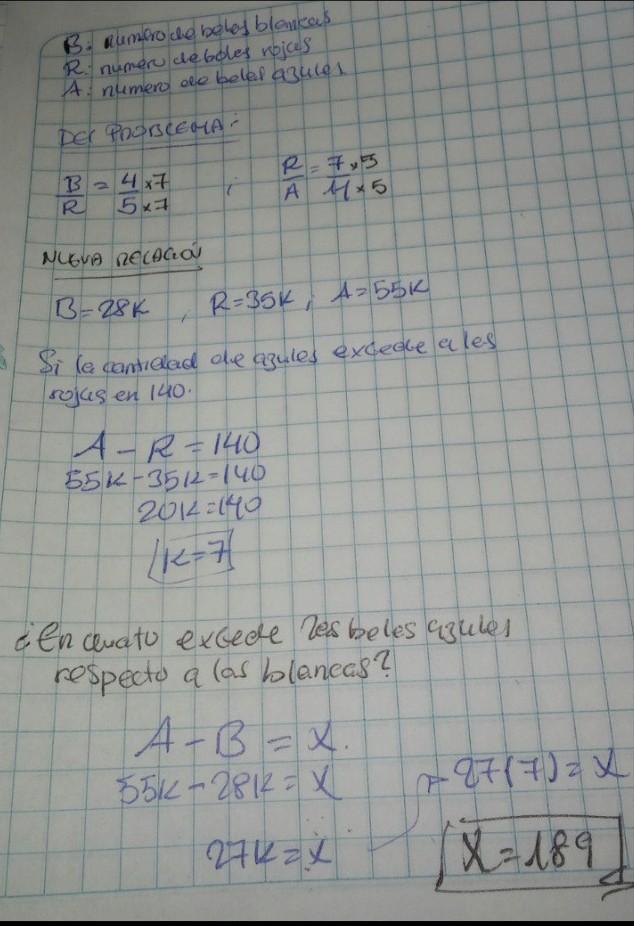 B: numero de boles blancas
R: numero de boles rojas
A: numero de boles azules
Del PROBLEMA:
B/R = 4x7/5x7 ; R/A = 7x5/11x5
NUEVA RELACIÓN
B=28K , R=35K ; A=55K
Si la cantidad de azules excede a las
rojas en 140.
A - R = 140
55K - 35K = 140
20K = 140
K=7
¿En cuato excede les boles azules
respecto a las blancas?
A - B = X.
55K - 28K = X
27(7) = X
27K = X
X = 189